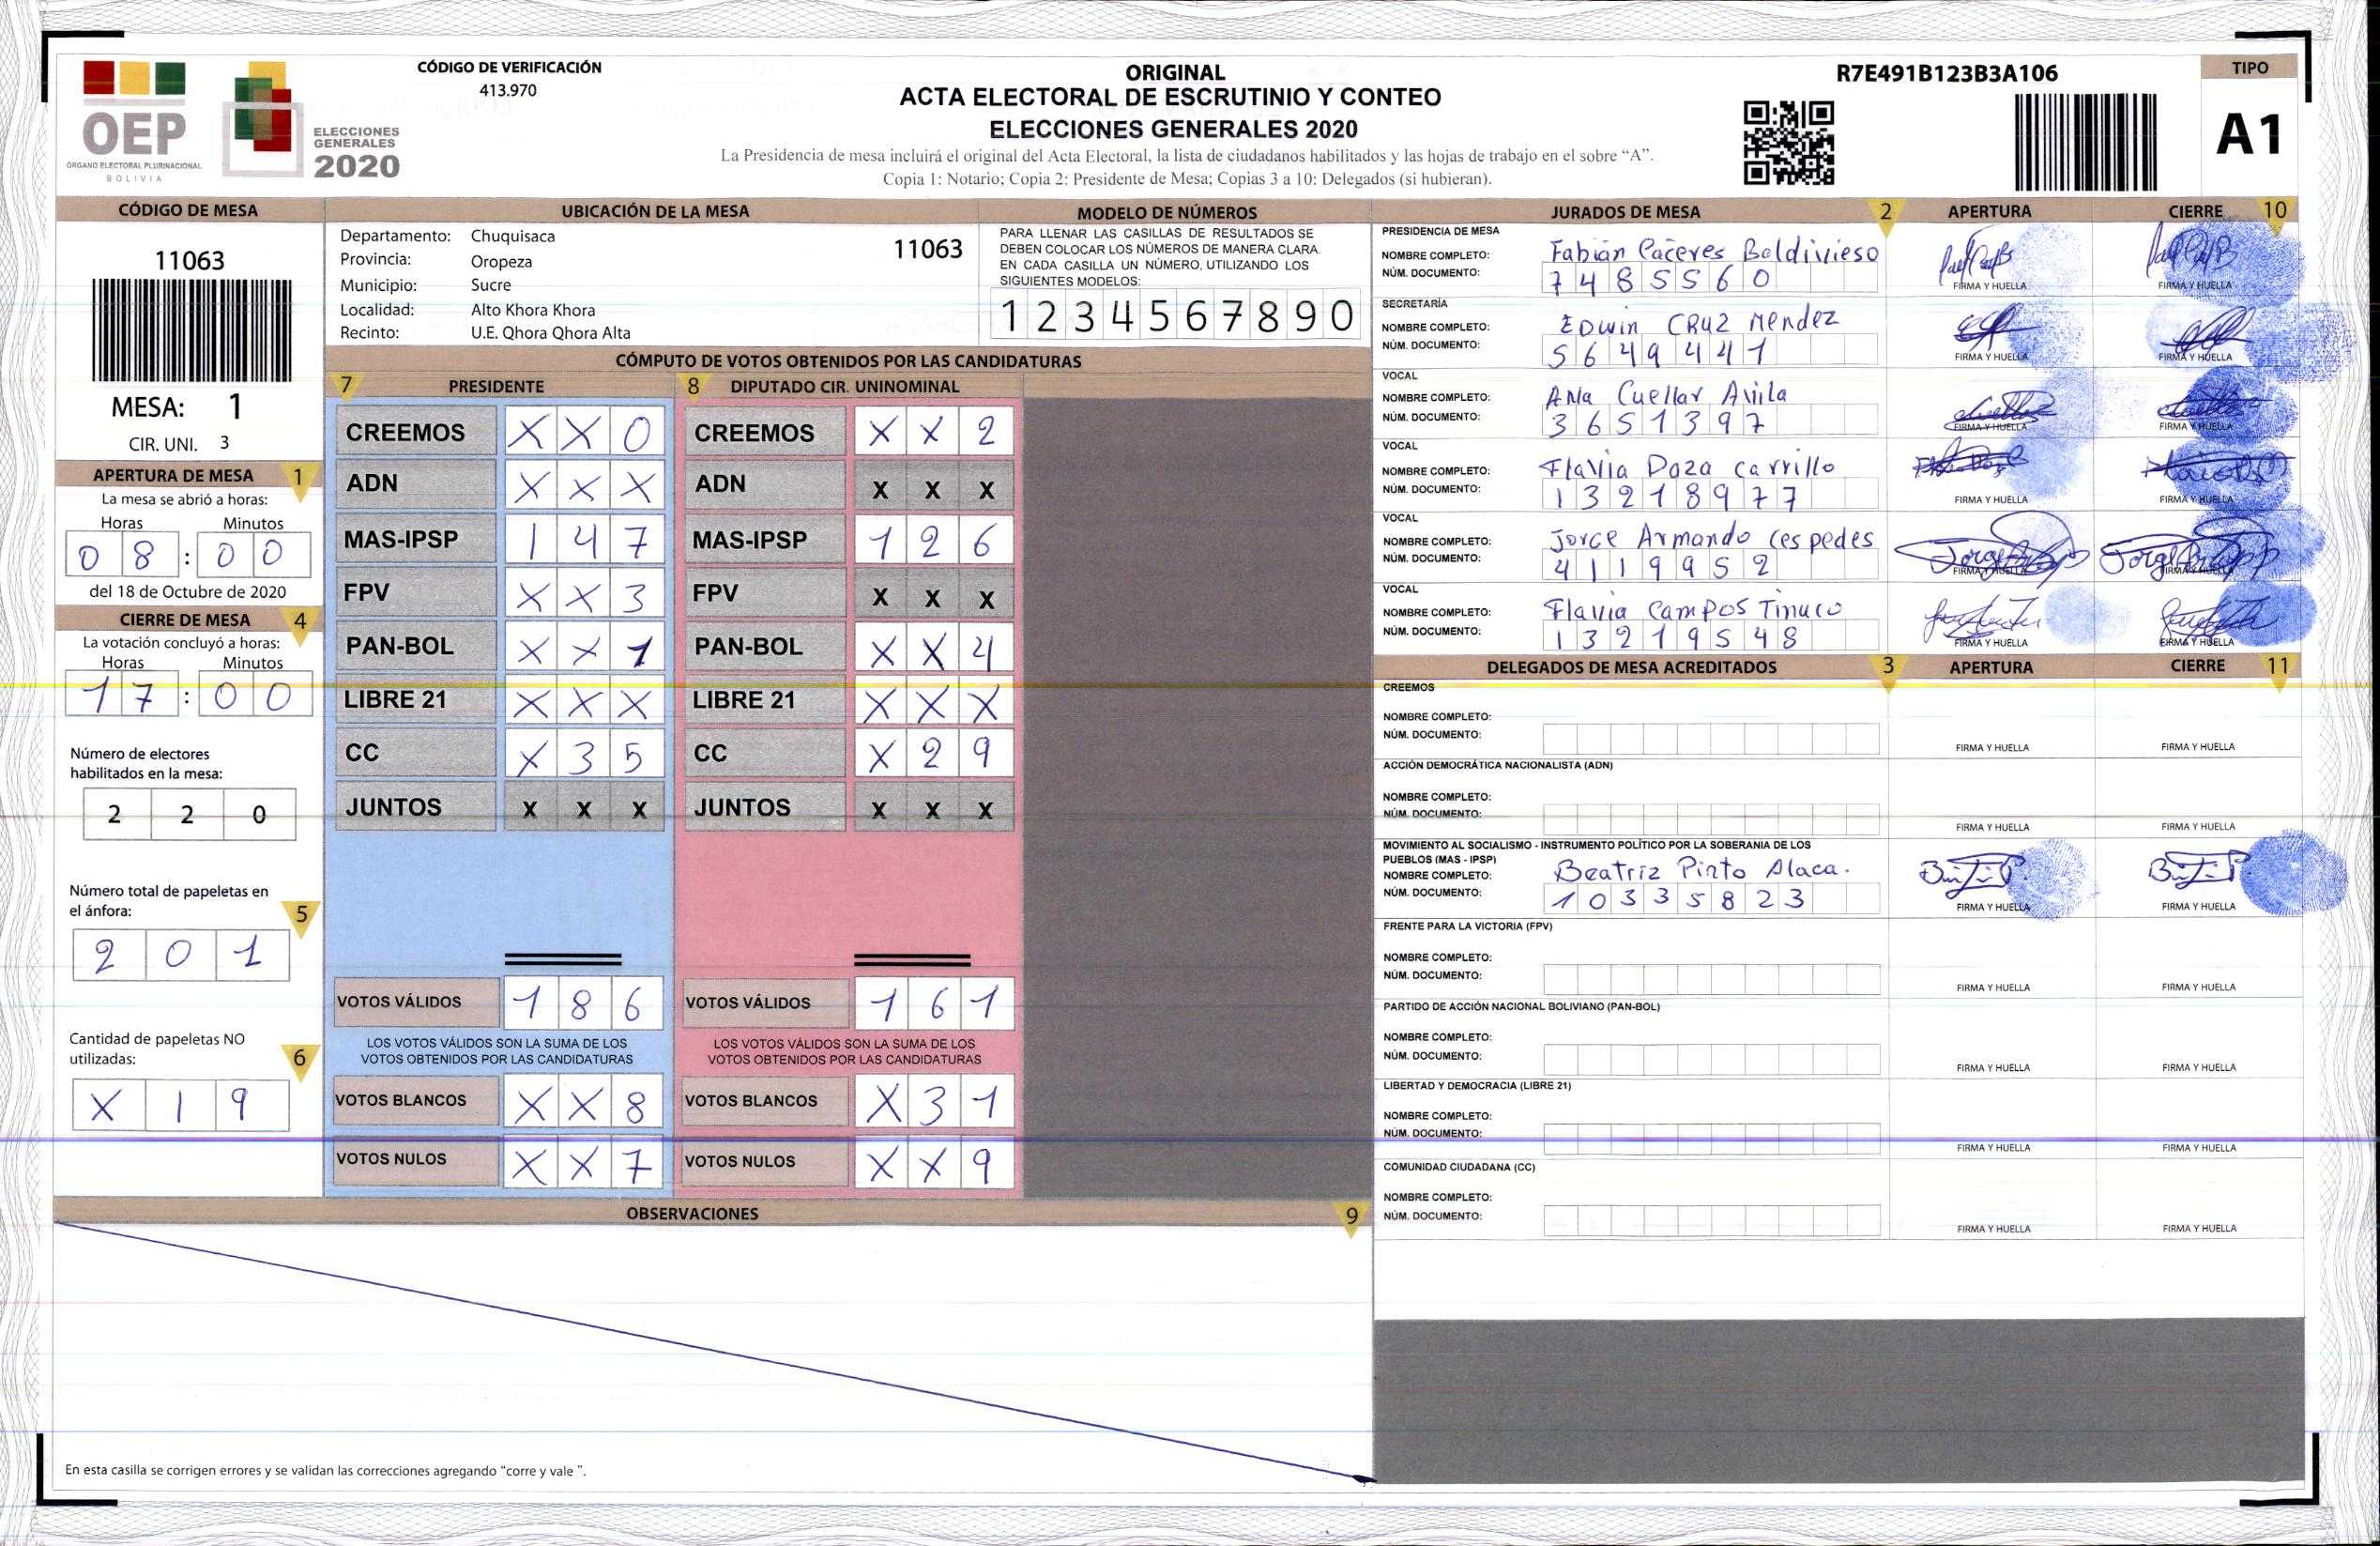 OEP
ÓRGANO ELECTORAL PLURINACIONAL
BOLIVIA
ELECCIONES
GENERALES
2020
CÓDIGO DE VERIFICACIÓN
413.970
ORIGINAL
ACTA ELECTORAL DE ESCRUTINIO Y CONTEO
ELECCIONES GENERALES 2020
La Presidencia de mesa incluirá el original del Acta Electoral, la lista de ciudadanos habilitados y las hojas de trabajo en el sobre “A”.
Copia 1: Notario; Copia 2: Presidente de Mesa; Copias 3 a 10: Delegados (si hubieran).
R7E491B123B3A106
TIPO
A1
CÓDIGO DE MESA
11063
MESA: 1
CIR. UNI. 3
APERTURA DE MESA 1
La mesa se abrió a horas:
Horas Minutos
0 8 : 0 0
del 18 de Octubre de 2020
CIERRE DE MESA 4
La votación concluyó a horas:
Horas Minutos
1 7 : 0 0
Número de electores
habilitados en la mesa:
2 2 0
Número total de papeletas en
el ánfora: 5
2 0 1
Cantidad de papeletas NO
utilizadas: 6
X 1 9
UBICACIÓN DE LA MESA
Departamento: Chuquisaca 11063
Provincia: Oropeza
Municipio: Sucre
Localidad: Alto Khora Khora
Recinto: U.E. Qhora Qhora Alta
MODELO DE NÚMEROS
PARA LLENAR LAS CASILLAS DE RESULTADOS SE
DEBEN COLOCAR LOS NÚMEROS DE MANERA CLARA.
EN CADA CASILLA UN NÚMERO, UTILIZANDO LOS
SIGUIENTES MODELOS:
1 2 3 4 5 6 7 8 9 0
CÓMPUTO DE VOTOS OBTENIDOS POR LAS CANDIDATURAS
7 PRESIDENTE 8 DIPUTADO CIR. UNINOMINAL
CREEMOS X X 0 CREEMOS X X 2
ADN X X X ADN X X X
MAS-IPSP 1 4 7 MAS-IPSP 1 2 6
FPV X X 3 FPV X X X
PAN-BOL X X 1 PAN-BOL X X 4
LIBRE 21 X X X LIBRE 21 X X X
CC X 3 5 CC X 2 9
JUNTOS X X X JUNTOS X X X
VOTOS VÁLIDOS 1 8 6 VOTOS VÁLIDOS 1 6 1
LOS VOTOS VÁLIDOS SON LA SUMA DE LOS LOS VOTOS VÁLIDOS SON LA SUMA DE LOS
VOTOS OBTENIDOS POR LAS CANDIDATURAS VOTOS OBTENIDOS POR LAS CANDIDATURAS
VOTOS BLANCOS X X 8 VOTOS BLANCOS X 3 1
VOTOS NULOS X X 7 VOTOS NULOS X X 9
OBSERVACIONES 9
En esta casilla se corrigen errores y se validan las correcciones agregando “corre y vale ”.
JURADOS DE MESA 2 APERTURA CIERRE 10
PRESIDENCIA DE MESA
NOMBRE COMPLETO: Fabián Caceres Baldivieso
NÚM. DOCUMENTO: 7 4 8 5 5 6 0
FIRMA Y HUELLA FIRMA Y HUELLA
SECRETARÍA
NOMBRE COMPLETO: Edwin CRUZ Mendez
NÚM. DOCUMENTO: 5 6 4 9 4 4 1
FIRMA Y HUELLA FIRMA Y HUELLA
VOCAL
NOMBRE COMPLETO: ANa Cuellar Avila
NÚM. DOCUMENTO: 3 6 5 1 3 9 7
FIRMA Y HUELLA FIRMA Y HUELLA
VOCAL
NOMBRE COMPLETO: Flavia Daza Carrillo
NÚM. DOCUMENTO: 1 3 2 1 8 9 7 7
FIRMA Y HUELLA FIRMA Y HUELLA
VOCAL
NOMBRE COMPLETO: Jorge Armando Cespedes
NÚM. DOCUMENTO: 4 1 1 9 9 5 2
FIRMA Y HUELLA FIRMA Y HUELLA
VOCAL
NOMBRE COMPLETO: Flavia Campos Tinuco
NÚM. DOCUMENTO: 1 3 2 1 9 5 4 8
FIRMA Y HUELLA FIRMA Y HUELLA
DELEGADOS DE MESA ACREDITADOS 3 APERTURA CIERRE 11
CREEMOS
NOMBRE COMPLETO:
NÚM. DOCUMENTO:
FIRMA Y HUELLA FIRMA Y HUELLA
ACCIÓN DEMOCRÁTICA NACIONALISTA (ADN)
NOMBRE COMPLETO:
NÚM. DOCUMENTO:
FIRMA Y HUELLA FIRMA Y HUELLA
MOVIMIENTO AL SOCIALISMO - INSTRUMENTO POLÍTICO POR LA SOBERANIA DE LOS
PUEBLOS (MAS - IPSP)
NOMBRE COMPLETO: Beatriz Pinto Alaca.
NÚM. DOCUMENTO: 1 0 3 3 5 8 2 3
FIRMA Y HUELLA FIRMA Y HUELLA
FRENTE PARA LA VICTORIA (FPV)
NOMBRE COMPLETO:
NÚM. DOCUMENTO:
FIRMA Y HUELLA FIRMA Y HUELLA
PARTIDO DE ACCIÓN NACIONAL BOLIVIANO (PAN-BOL)
NOMBRE COMPLETO:
NÚM. DOCUMENTO:
FIRMA Y HUELLA FIRMA Y HUELLA
LIBERTAD Y DEMOCRACIA (LIBRE 21)
NOMBRE COMPLETO:
NÚM. DOCUMENTO:
FIRMA Y HUELLA FIRMA Y HUELLA
COMUNIDAD CIUDADANA (CC)
NOMBRE COMPLETO:
NÚM. DOCUMENTO:
FIRMA Y HUELLA FIRMA Y HUELLA